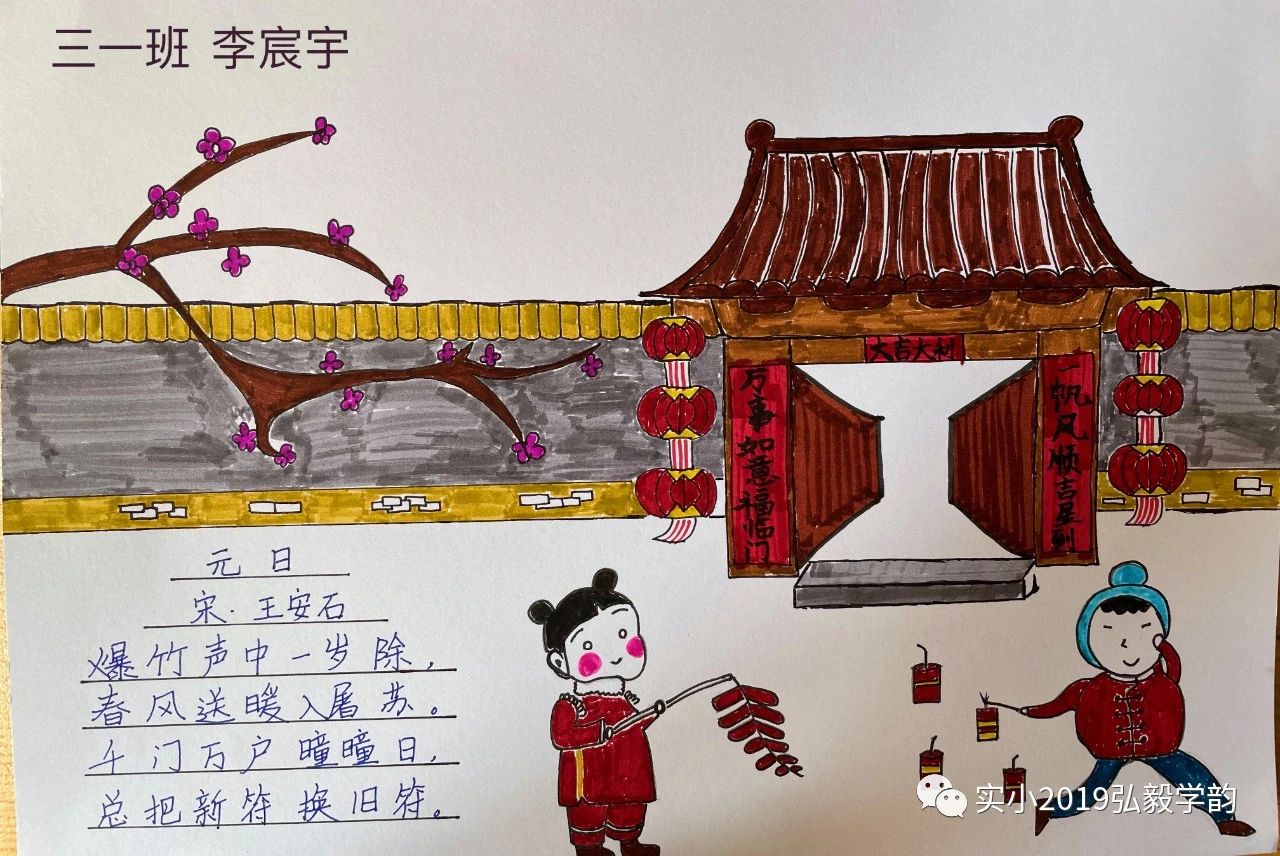 三一班 李宸宇
大吉大利
万事如意福临门
一帆风顺吉星到
元日
宋·王安石
爆竹声中一岁除，
春风送暖入屠苏。
千门万户曈曈日，
总把新符换旧符。
实小2019弘毅学韵